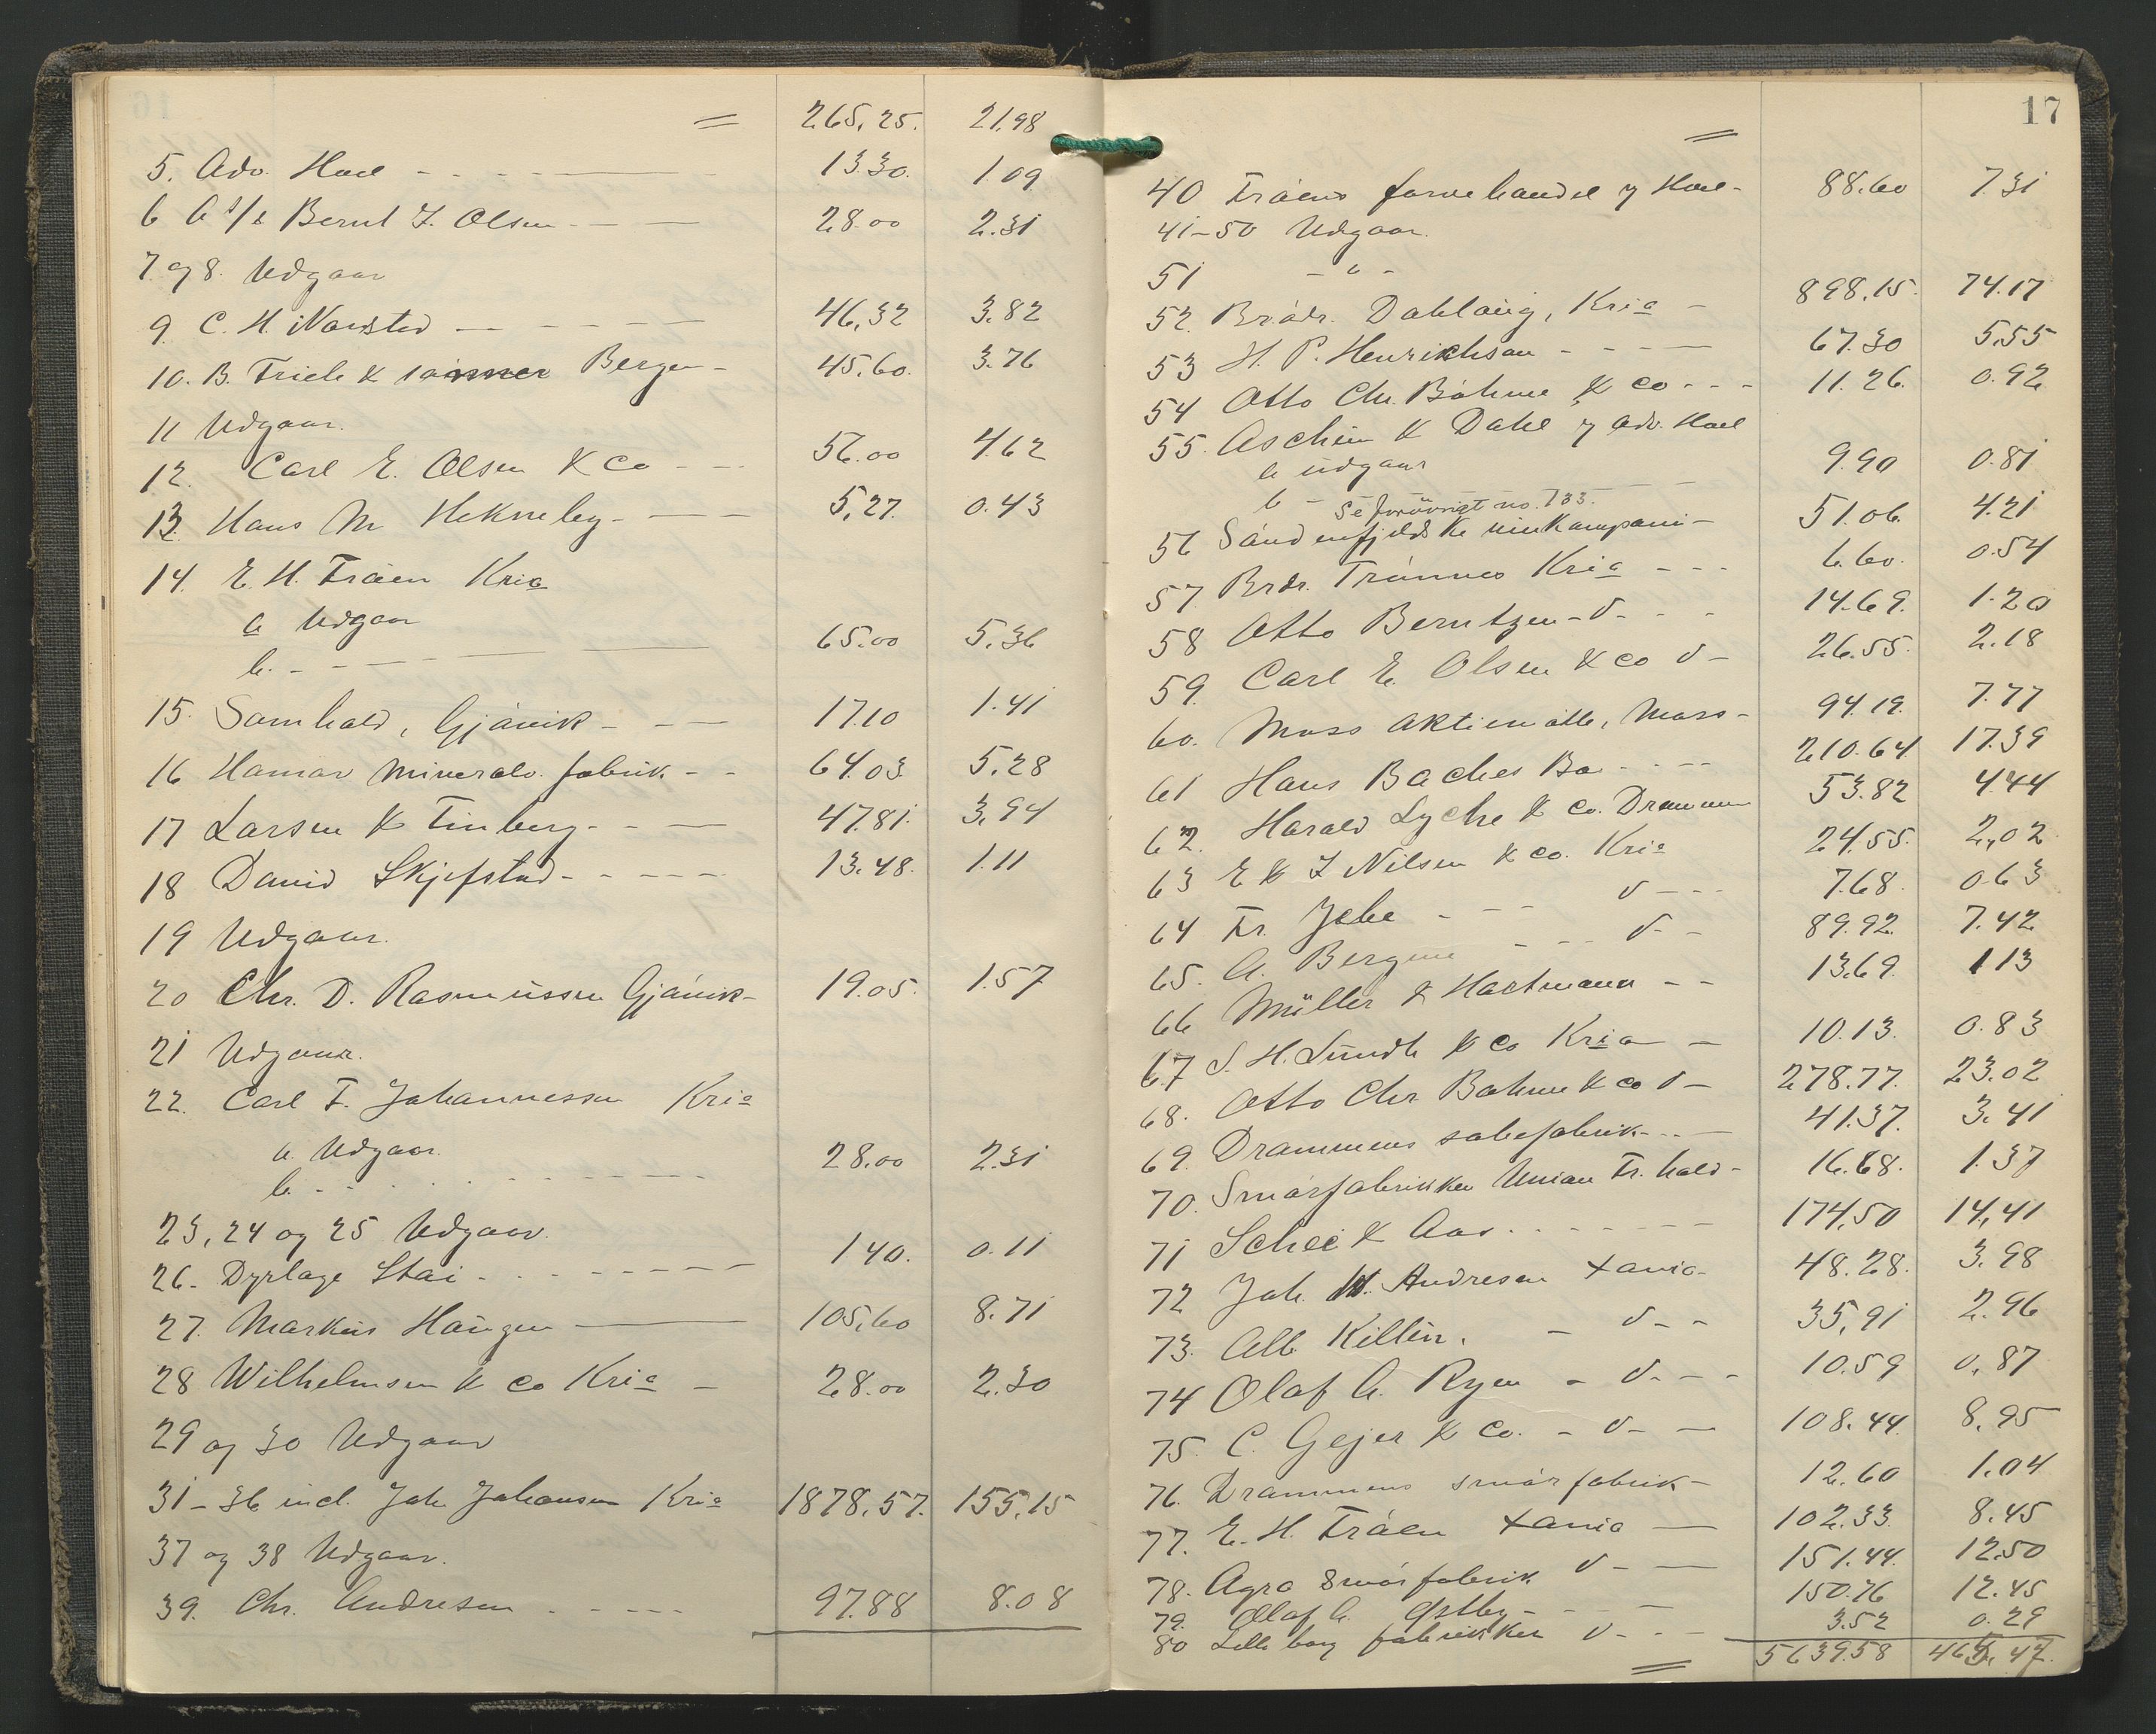 = 265.25. 21.98
5. Adv. Hoel - - - 13.30. 1.09
6 A/S Bernt I. Olsen - - 28.00 2.31
7 og 8. Udgaar
9 C. H. Narstad - - - 46,32 3.82
10. B. Friele & sønner Bergen - 45.60. 3.76
11 Udgaar.
12. Carl E. Olsen & Co - - 56.00 4.62
13. Hans M Hekneby - - 5,27. 0.43
14. E. H. Fråen Kria
a Udgaar
b. - - - 65.00 5,36
15. Samhold, Gjøvik - - 17.10 1.41
16 Hamar mineralv. fabrik - - 64.03 5.28
17 Larsen & Finberg - - 47.81. 3.94
18 David Skjefstad - - - 13.48. 1.11
19 Udgaar.
20 Chr. D. Rasmussen Gjøvik - 19.05. 1.57
21 Udgaar.
22. Carl F. Johannessen Kria
a. Udgaar.
b. - - - 28.00 2.31
23, 24 og 25 Udgaar.
26 - Dyrlæge Stai - - - 1 40. 0.11
27. Markus Haugen - 105,60 8.71
28 Wilhelmsen & Co Kria - 28.00 2.30
29 og 30 Udgaar
31 - 36 incl. Joh. Johansen Kria 1878,57. 155,15
37 og 38 Udgaar.
39. Chr. Andresen - - - 97.88 8.08
17
=
40 Fråens farvehandel v/ Hoel - 88.60 7.31
41-50 Udgaar.
51 - " -
52. Brødr. Dahlaug, Kria - 898.15. 74.17
53 H. P. Henrikhsen - - - 67.30 5.55
54 Otto Chr. Bøhme & Co - - - 11.26. 0.92
55. Aschim & Dahl v/ adv. Hoel
a udgaar
b - - - 9.90 0.81
Se forøvrigt no. 133.
56 Søndenfjeldske vinkompani - 51.06. 4.21
57. Brdr. Trønnes Kria - - - 6.60. 0.54
58 Otto Berntzen - d - - 14.69. 1.20
59. Carl E. Olsen & Co d - 26.55. 2.18
60. Moss Aktiemølle, Moss - 94.19. 7.77
61 Hans Baches Bo - - - 210.64. 17.39
62. Harald Lyche & Co. Drammen 53.82 4.44
63 E & I Nilsen & Co. Kria 24.55. 2,02
64 Fr. Jebe - - - d - - - 7.68. 0.63
65. A. Bergene - - - d - - 89.92. 7.42
66 Müller & Hartmann - - 13.69. 1 13
67 S. H. Lundh & Co Kria - 10.13. 0.83
68. Otto Chr Bøhme & Co d - 278.77. 23.02
69. Drammens sæbefabrik - - 41.37. 3.41
70. Smørfabrikken Union Fr.hald - 16.68. 1.37
71 Schee & Aas - - - 174,50 14,41
72 Joh. H. Andresen Xania - 48.28. 3.98
73. Alb. Killin. - d - - 35,91 2.96
74 Olaf A. Ryen - d - - - 10.59 0,87
75. C. Gejer & Co. - d - - 108.44. 8,95
76. Drammens smørfabrik - 12.60 1.04
77. E. H. Fråen Xania - 102.33. 8.45
78. Agra Smørfabrik d - - 151.44. 12.50
79. Olaf A. Østby - - - 150.76 12.45
80 Lilleborg fabrikker d - - 3.52 0.29
= 5639.58 465,47.